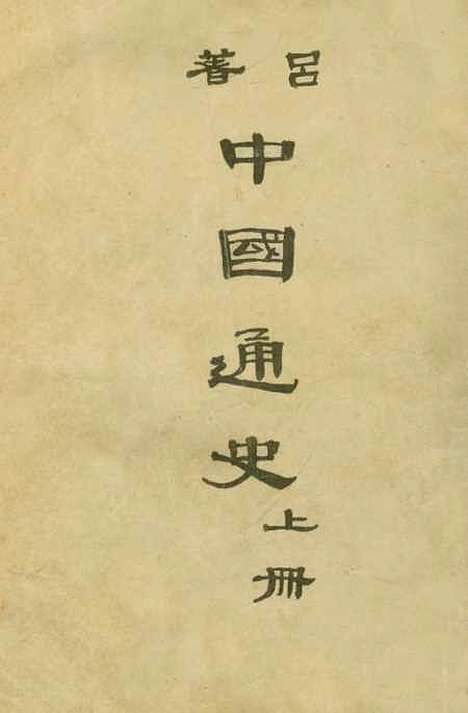 呂著
中國通史
上冊